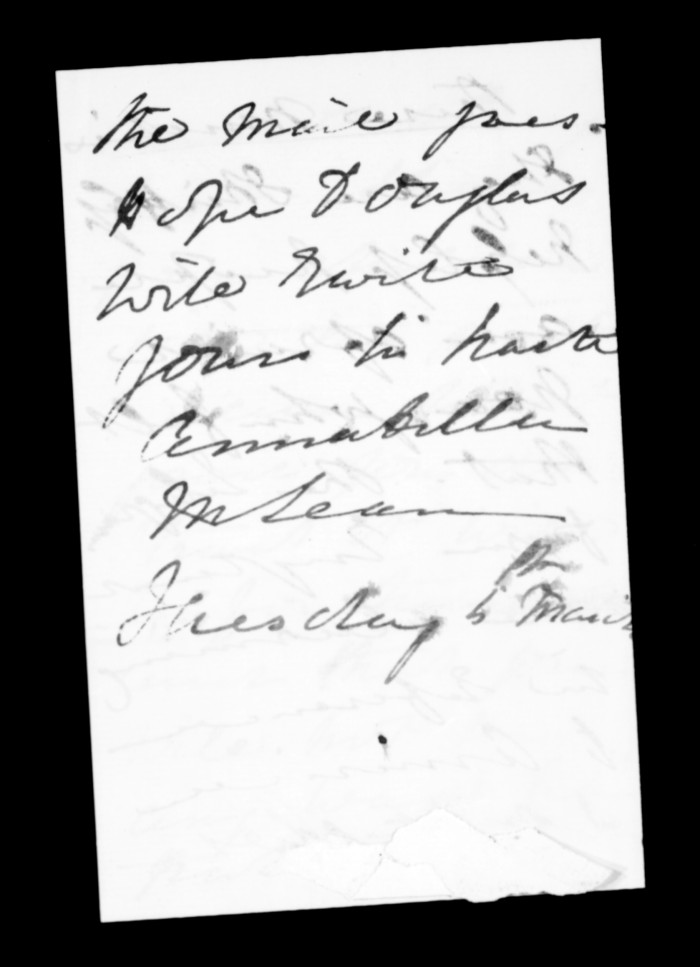 the Mail goes.
Hope Douglas
Will Write
yours in haste
Annabella
McLean
Tuesday 6th March